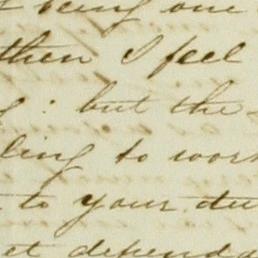 being one
then I feel
: but the
ling to work
to your du
et depend